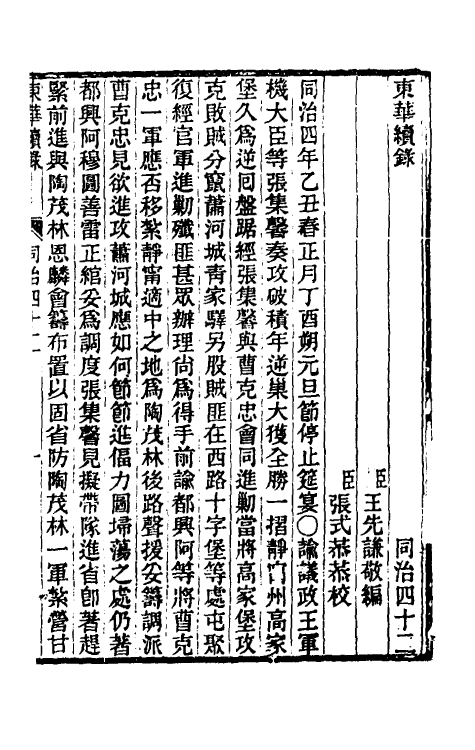 東華續錄
同治四十二
臣王先謙敬編
臣張式恭恭校
同治四年乙丑春正月丁酉朔元旦節停止筵宴○諭議政王軍
機大臣等張集馨奏攻破積年逆巢大獲全勝一摺靜甯州高家
堡久爲逆回盤踞經張集馨與曹克忠會同進勦當將高家堡攻
克敗賊分竄蕭河城靑家驛另股賊匪在西路十字堡等處屯聚
復經官軍進勦殲匪甚眾辦理尙爲得手前諭都興阿等將曹克
忠一軍應否移紮靜甯適中之地爲陶茂林後路聲援妥籌調派
曹克忠見欲進攻蕭河城應如何節節進偪力圖埽蕩之處仍著
都興阿穆圖善雷正綰妥爲調度張集馨見擬帶隊進省卽著趕
緊前進與陶茂林恩麟會籌布置以固省防陶茂林一軍紮營甘
東華續錄
同治四十二
一